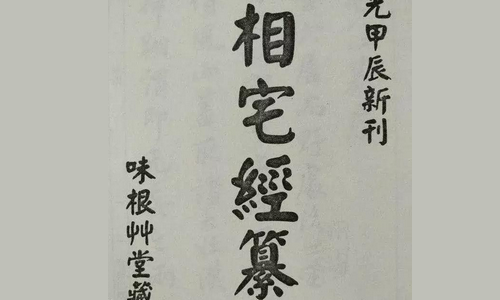 光甲辰新刊
相宅經纂
味根艸堂藏